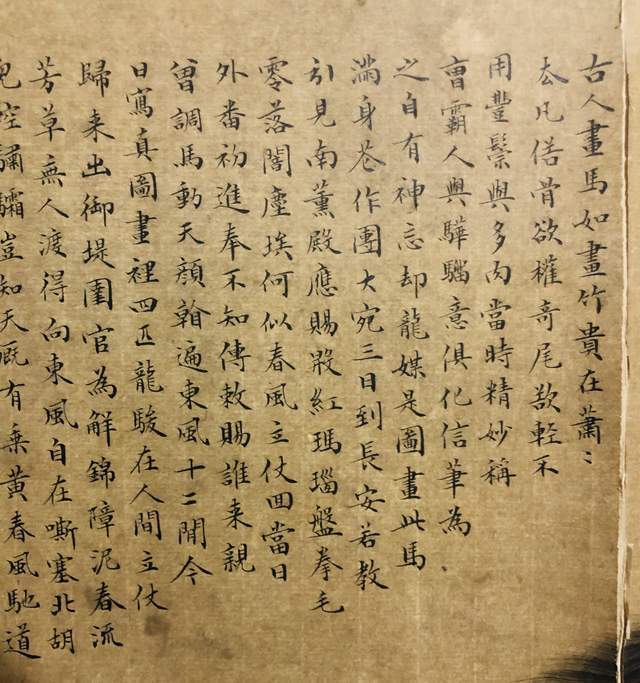 古人畫馬如畫竹貴在蕭〻
去凡俗骨欲權奇尾欲輕不
用豐鬃與多肉當時精妙稱
曹霸人與驊騮意俱化信筆為、
之自有神忘却龍媒是圖畫此馬
滿身花作團大宛三日到長安若教
引見南薰殿應賜殷紅瑪瑙盤拳毛
零落闇塵埃何似春風立仗回當日
外番初進奉不知傳敕賜誰来親
曾調馬動天顏翰遍東風十二閒今
日寫真圖畫裡四匹龍駿在人間立仗
歸来出御堤圉官為解錦障泥春流
芳草無人渡得向東風自在嘶塞北胡
兒控驌驦豈知天厩有乗黃春風馳道